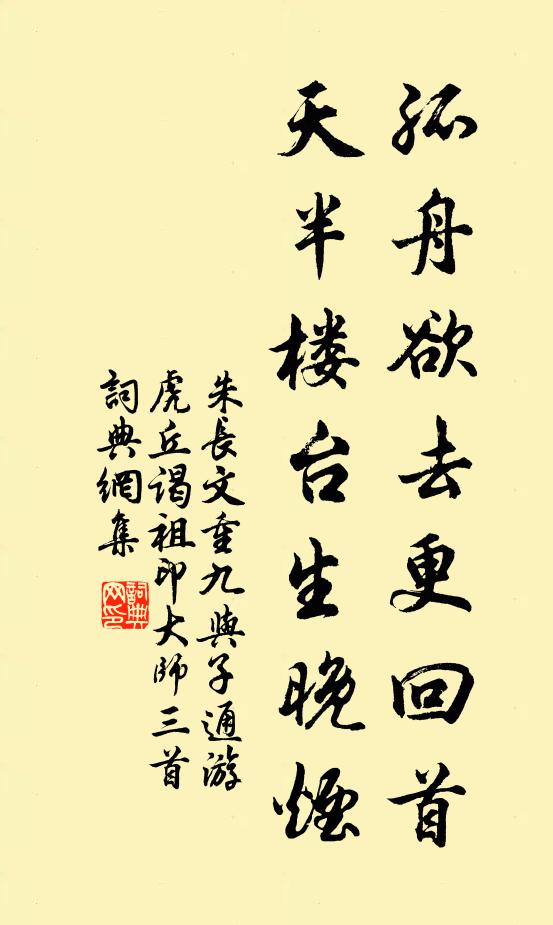 孤舟欲去更回首
天半楼台生晚煙
朱長文重九與子通游
虎丘謁祖印大師三首
詞典網集
詞典
网印